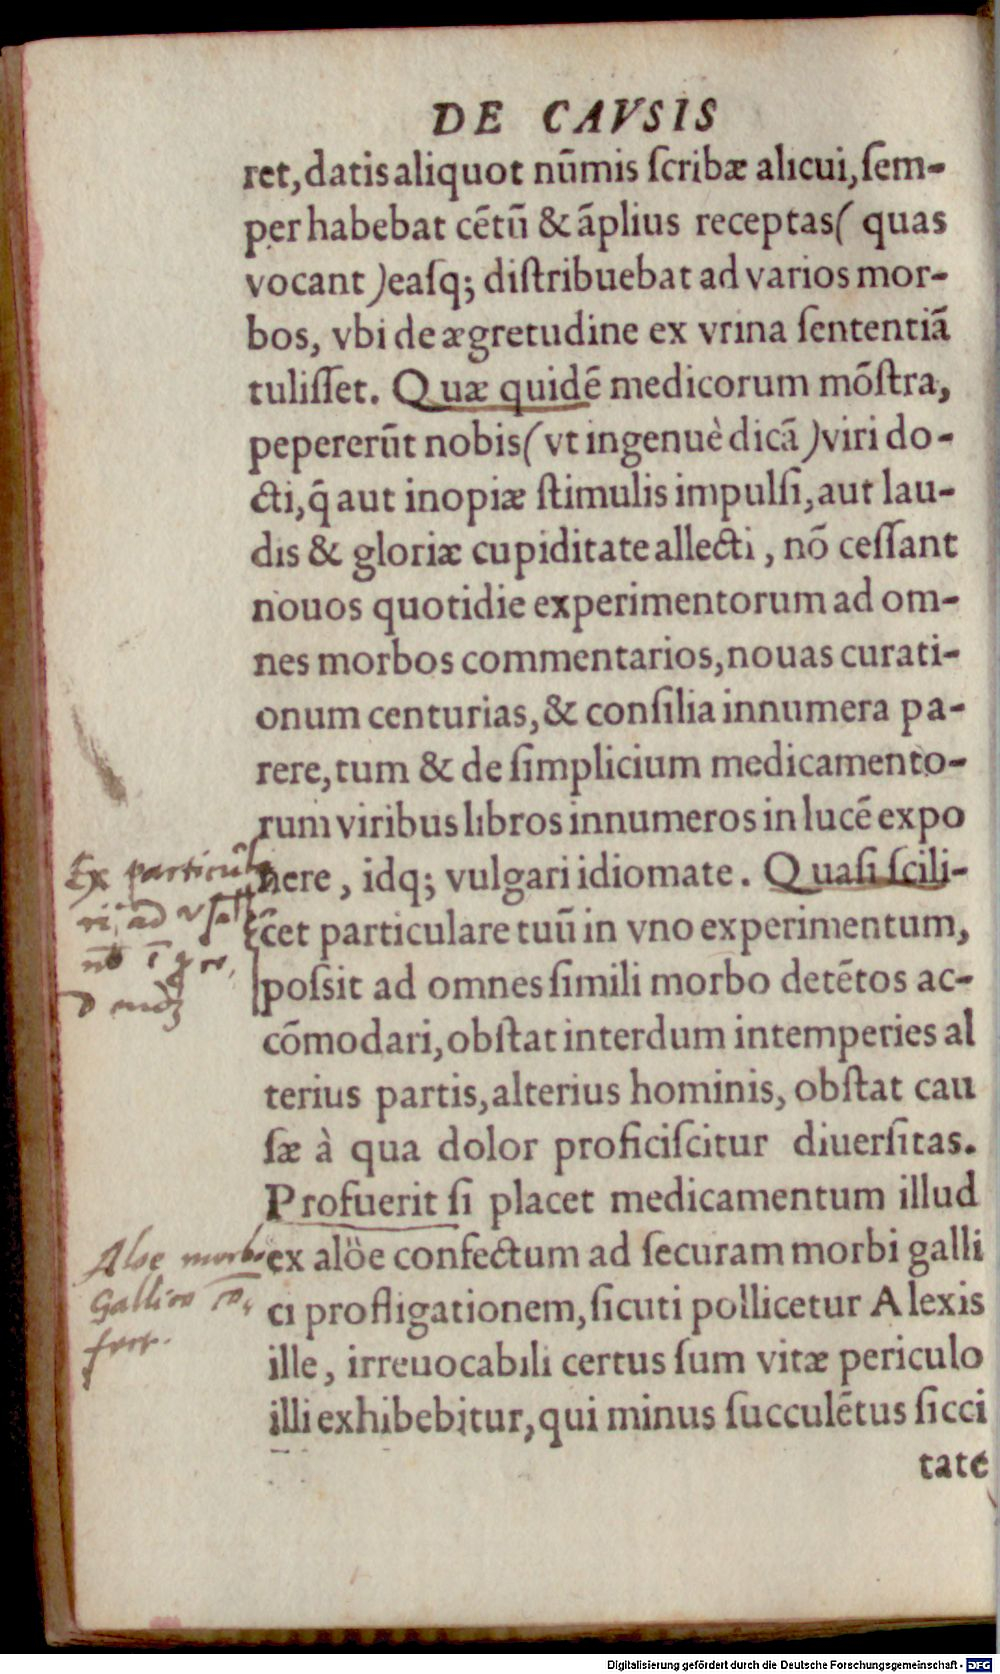 DE CAVSIS
ret, datis aliquot nūmis ſcribæ alicui, ſem-
per habebat cētū & āplius receptas ( quas
vocant ) eaſq; diſtribuebat ad varios mor-
bos, vbi de ægretudine ex vrina ſententiā
tuliſſet. Quæ quidē medicorum mōſtra,
pepererūt nobis ( vt ingenuè dicā ) viri do-
cti, q̄ aut inopiæ ſtimulis impulſi, aut lau-
dis & gloriæ cupiditate allecti, nō ceſſant
nouos quotidie experimentorum ad om-
nes morbos commentarios, nouas curati-
onum centurias, & conſilia innumera pa-
rere, tum & de ſimplicium medicamento-
rum viribus libros innumeros in lucē expo
nere, idq; vulgari idiomate. Quaſi ſcili-
cet particulare tuū in vno experimentum,
poſsit ad omnes ſimili morbo detētos ac-
cōmodari, obſtat interdum intemperies al
terius partis, alterius hominis, obſtat cau
ſæ à qua dolor proficiſcitur diuerſitas.
Profuerit ſi placet medicamentum illud
ex alöe confectum ad ſecuram morbi galli
ci profligationem, ſicuti pollicetur Alexis
ille, irreuocabili certus ſum vitæ periculo
illi exhibebitur, qui minus ſucculētus ſicci
tate
Ex
ad
Aloe morbo
Gallico
Digitalisierung gefördert durch die Deutsche Forschungsgemeinschaft - DFG